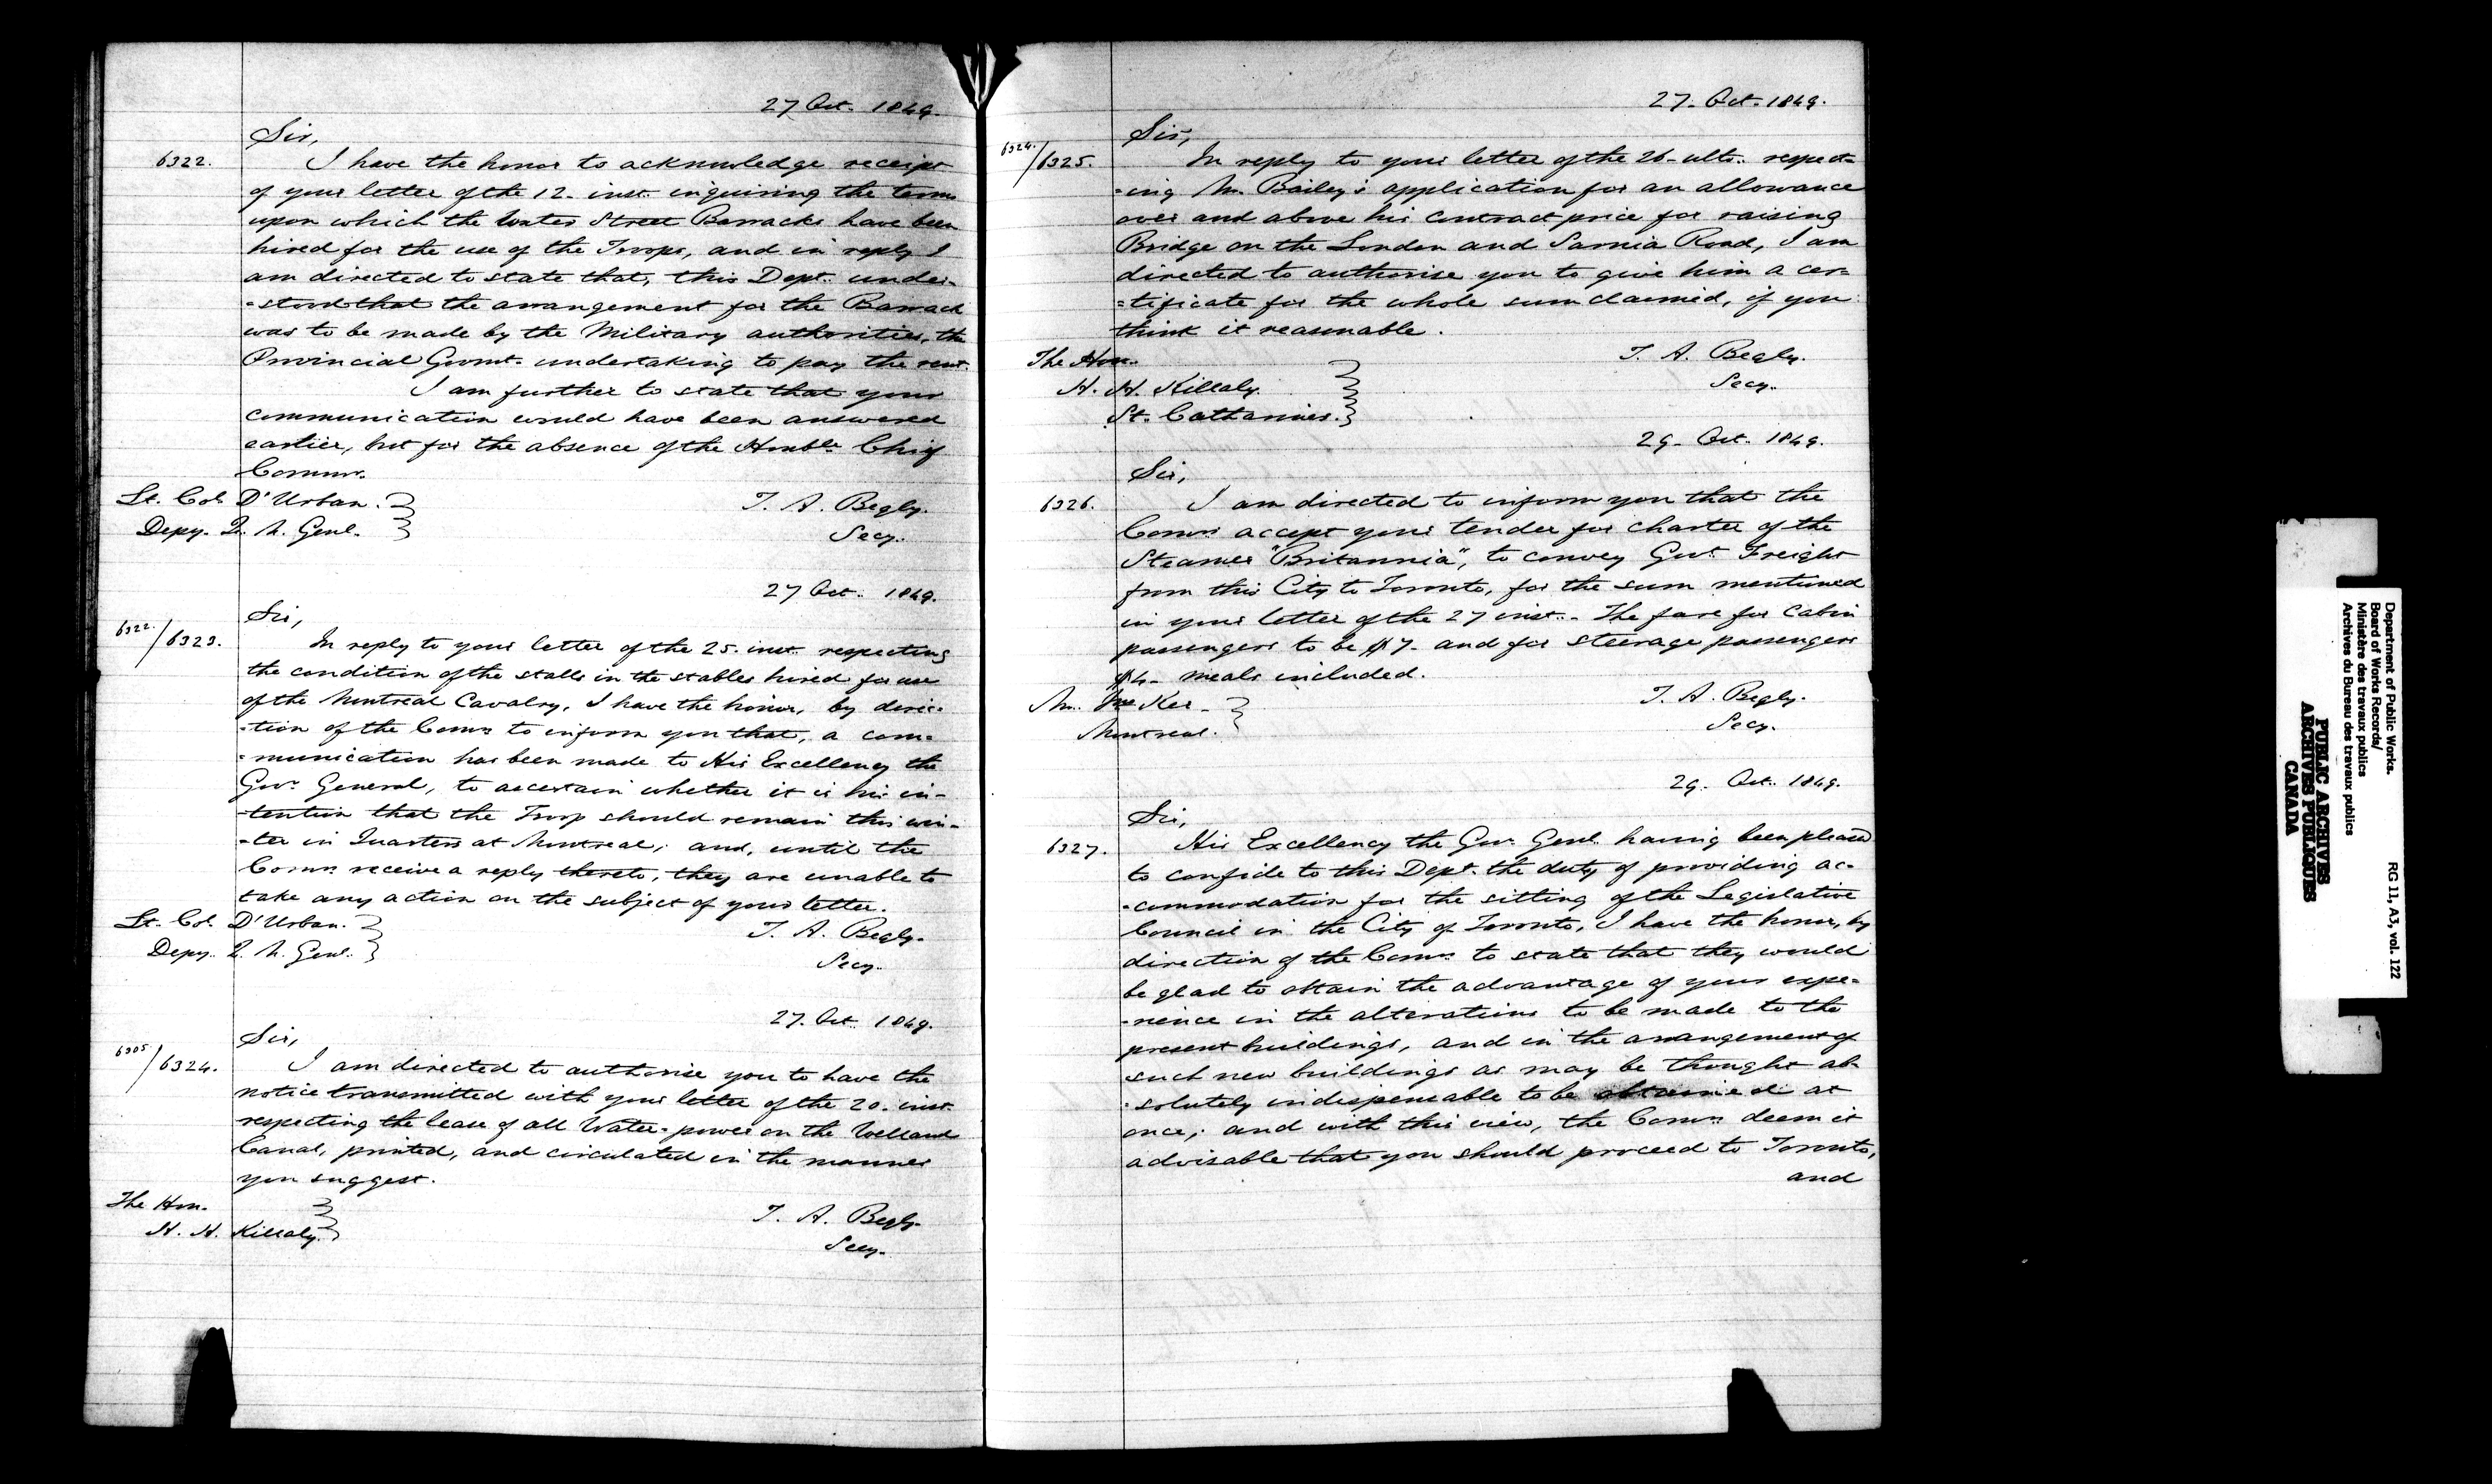 27 Oct. 1849.
Sir,
6322.
I have the honor to acknowledge receipt
of your letter of the 12. inst. inquiring the terms
upon which the Water Street Barracks have been
hired for the use of the Troops, and in reply I
am directed to state that, this Dept. under-
-stood that the arrangement for the Barrack
was to be made by the Military authorities, the
Provincial Govmt. undertaking to pay the rent.
I am further to state that your
communication would have been answered
earlier, but for the absence of the Honble. Chief
Commr.
Lt. Col. D'Urban.
T. A. Begly.
Depy. Q. M. Genl.
Secy.
27 Oct. 1849.
Sir,
6322./6323.
In reply to your letter of the 25. inst. respecting
the condition of the stalls in the stables hired for use
of the Montreal Cavalry, I have the honor, by direc-
-tion of the Comrs. to inform you that, a com-
-munication has been made to His Excellency the
Govr. General, to ascertain whether it is his in-
-tention that the Troop should remain this win-
-ter in Quarters at Montreal; and, until the
Comrs. receive a reply thereto, they are unable to
take any action on the subject of your letter.
Lt. Col. D'Urban.
T. A. Begly.
Depy. Q. M. Genl.
Secy.
27. Oct. 1849.
Sir,
6305/6324.
I am directed to authorise you to have the
notice transmitted with your letter of the 20. inst.
respecting the lease of all Water-power on the Welland
Canal, printed, and circulated in the manner
you suggest.
The Hon.
T. A. Begly.
H. H. Killaly.
Secy.
27. Oct. 1849.
Sir,
6324./6325.
In reply to your letter of the 26- ulto. respect-
-ing Mr. Bailey's application for an allowance
over and above his contract price for raising
Bridge on the London and Sarnia Road, I am
directed to authorise you to give him a cer-
-tificate for the whole sum claimed, if you
think it reasonable.
The Hon.
T. A. Begly.
H. H. Killaly.
Secy.
St. Catharines.
29- Oct. 1849.
Sir,
6326.
I am directed to inform you that the
Comrs. accept your tender for charter of the
Steamer "Britannia", to convey Govt. Freight
from this City to Toronto, for the sum mentioned
in your letter of the 27 inst.- The fare for Cabin
passengers to be $7- and for steerage passengers
$4- meals included.
T. A. Begly.
Mr. Ker-
Secy.
Montreal.
29. Oct. 1849.
Sir,
6327.
His Excellency the Gov. Genl. having been pleased
to confide to this Dept. the duty of providing ac-
-commodation for the sitting of the Legislative
Council in the City of Toronto, I have the honor, by
direction of the Comrs. to state that they would
be glad to obtain the advantage of your expe-
-rience in the alterations to be made to the
present buildings, and in the arrangement of
such new buildings as may be thought ab-
-solutely indispensable to be obtained at
once; and with this view, the Comrs. deem it
advisable that you should proceed to Toronto,
and
Department of Public Works.
Board of Works Records/
Ministère des travaux publics
Archives du Bureau des travaux publics
RG 11, A3, vol. 122
PUBLIC ARCHIVES
ARCHIVES PUBLIQUES
CANADA